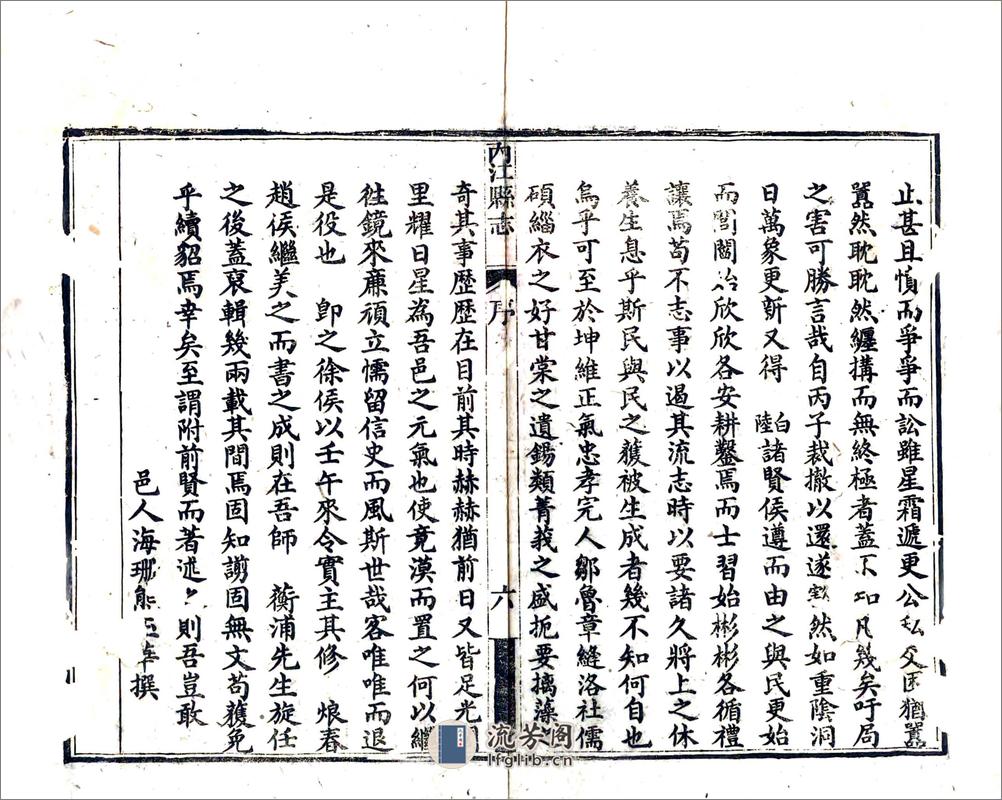 止甚且憤而爭爭而訟雖星霜遞更公私交困猶囂
囂然眈眈然纒搆而無終極者蓋不凡幾矣吁局
之害可勝言哉自丙子裁撤以還遂然如重陰洞
日萬象更新又得 白陸諸賢侯遵而由之與民更始
而閭閻洽欣欣各安耕鑿焉而士習始彬彬各循禮
讓焉苟不志事以遏其流志時以要諸久將上之休
養生息乎斯民與民之蒦被生成者幾不知何自也
烏乎可至於坤維正氣忠孝完人鄒魯章縫洛社儒
碩緇衣之好甘棠之遺錫類菁莪之盛扼要摛藻
內江縣志
序
六
奇其事歷歷在目前其時赫赫猶前日又皆足光
里耀日星為吾邑之元氣也使竟漠而置之何以繼
徃鏡來亷頑立懦留信史而風斯世哉客唯唯而退
是役也 卽之徐侯以壬午來令實主其修 烺春
趙侯繼美之而書之成則在吾師 蘅浦先生旋任
之後蓋裒輯幾兩載其間焉固知謭固無文苟蒦免
乎續貂焉幸矣至謂附前賢而著述則吾豈敢
邑人海珊熊撰
流芳阁
lfglib.cn